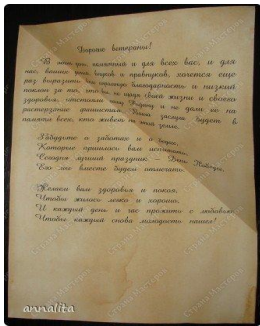 Дорогие ветераны!
В этот день, памятный и для всех вас, и для
нас, ваших детей, внуков и правнуков, хочется еще
раз выразить вам глубокую благодарность и низкий
поклон за то, что вы не щадя своей жизни и своего
здоровья, отстояли нашу Родину и не дали ее на
растерзание фашистам. Ваши заслуги будет в
памяти всех, кто живет на этой земле.
Забудьте о заботах и о бедах,
Которые пришлись вам испытать,
Сегодня лучший праздник - День Победы,
Его мы вместе будем отмечать.
Желаем вам здоровья и покоя,
Чтобы жилось легко и хорошо.
И каждый день и час прожить с любовью,
Чтобы каждый снова молодость нашел!
annalita